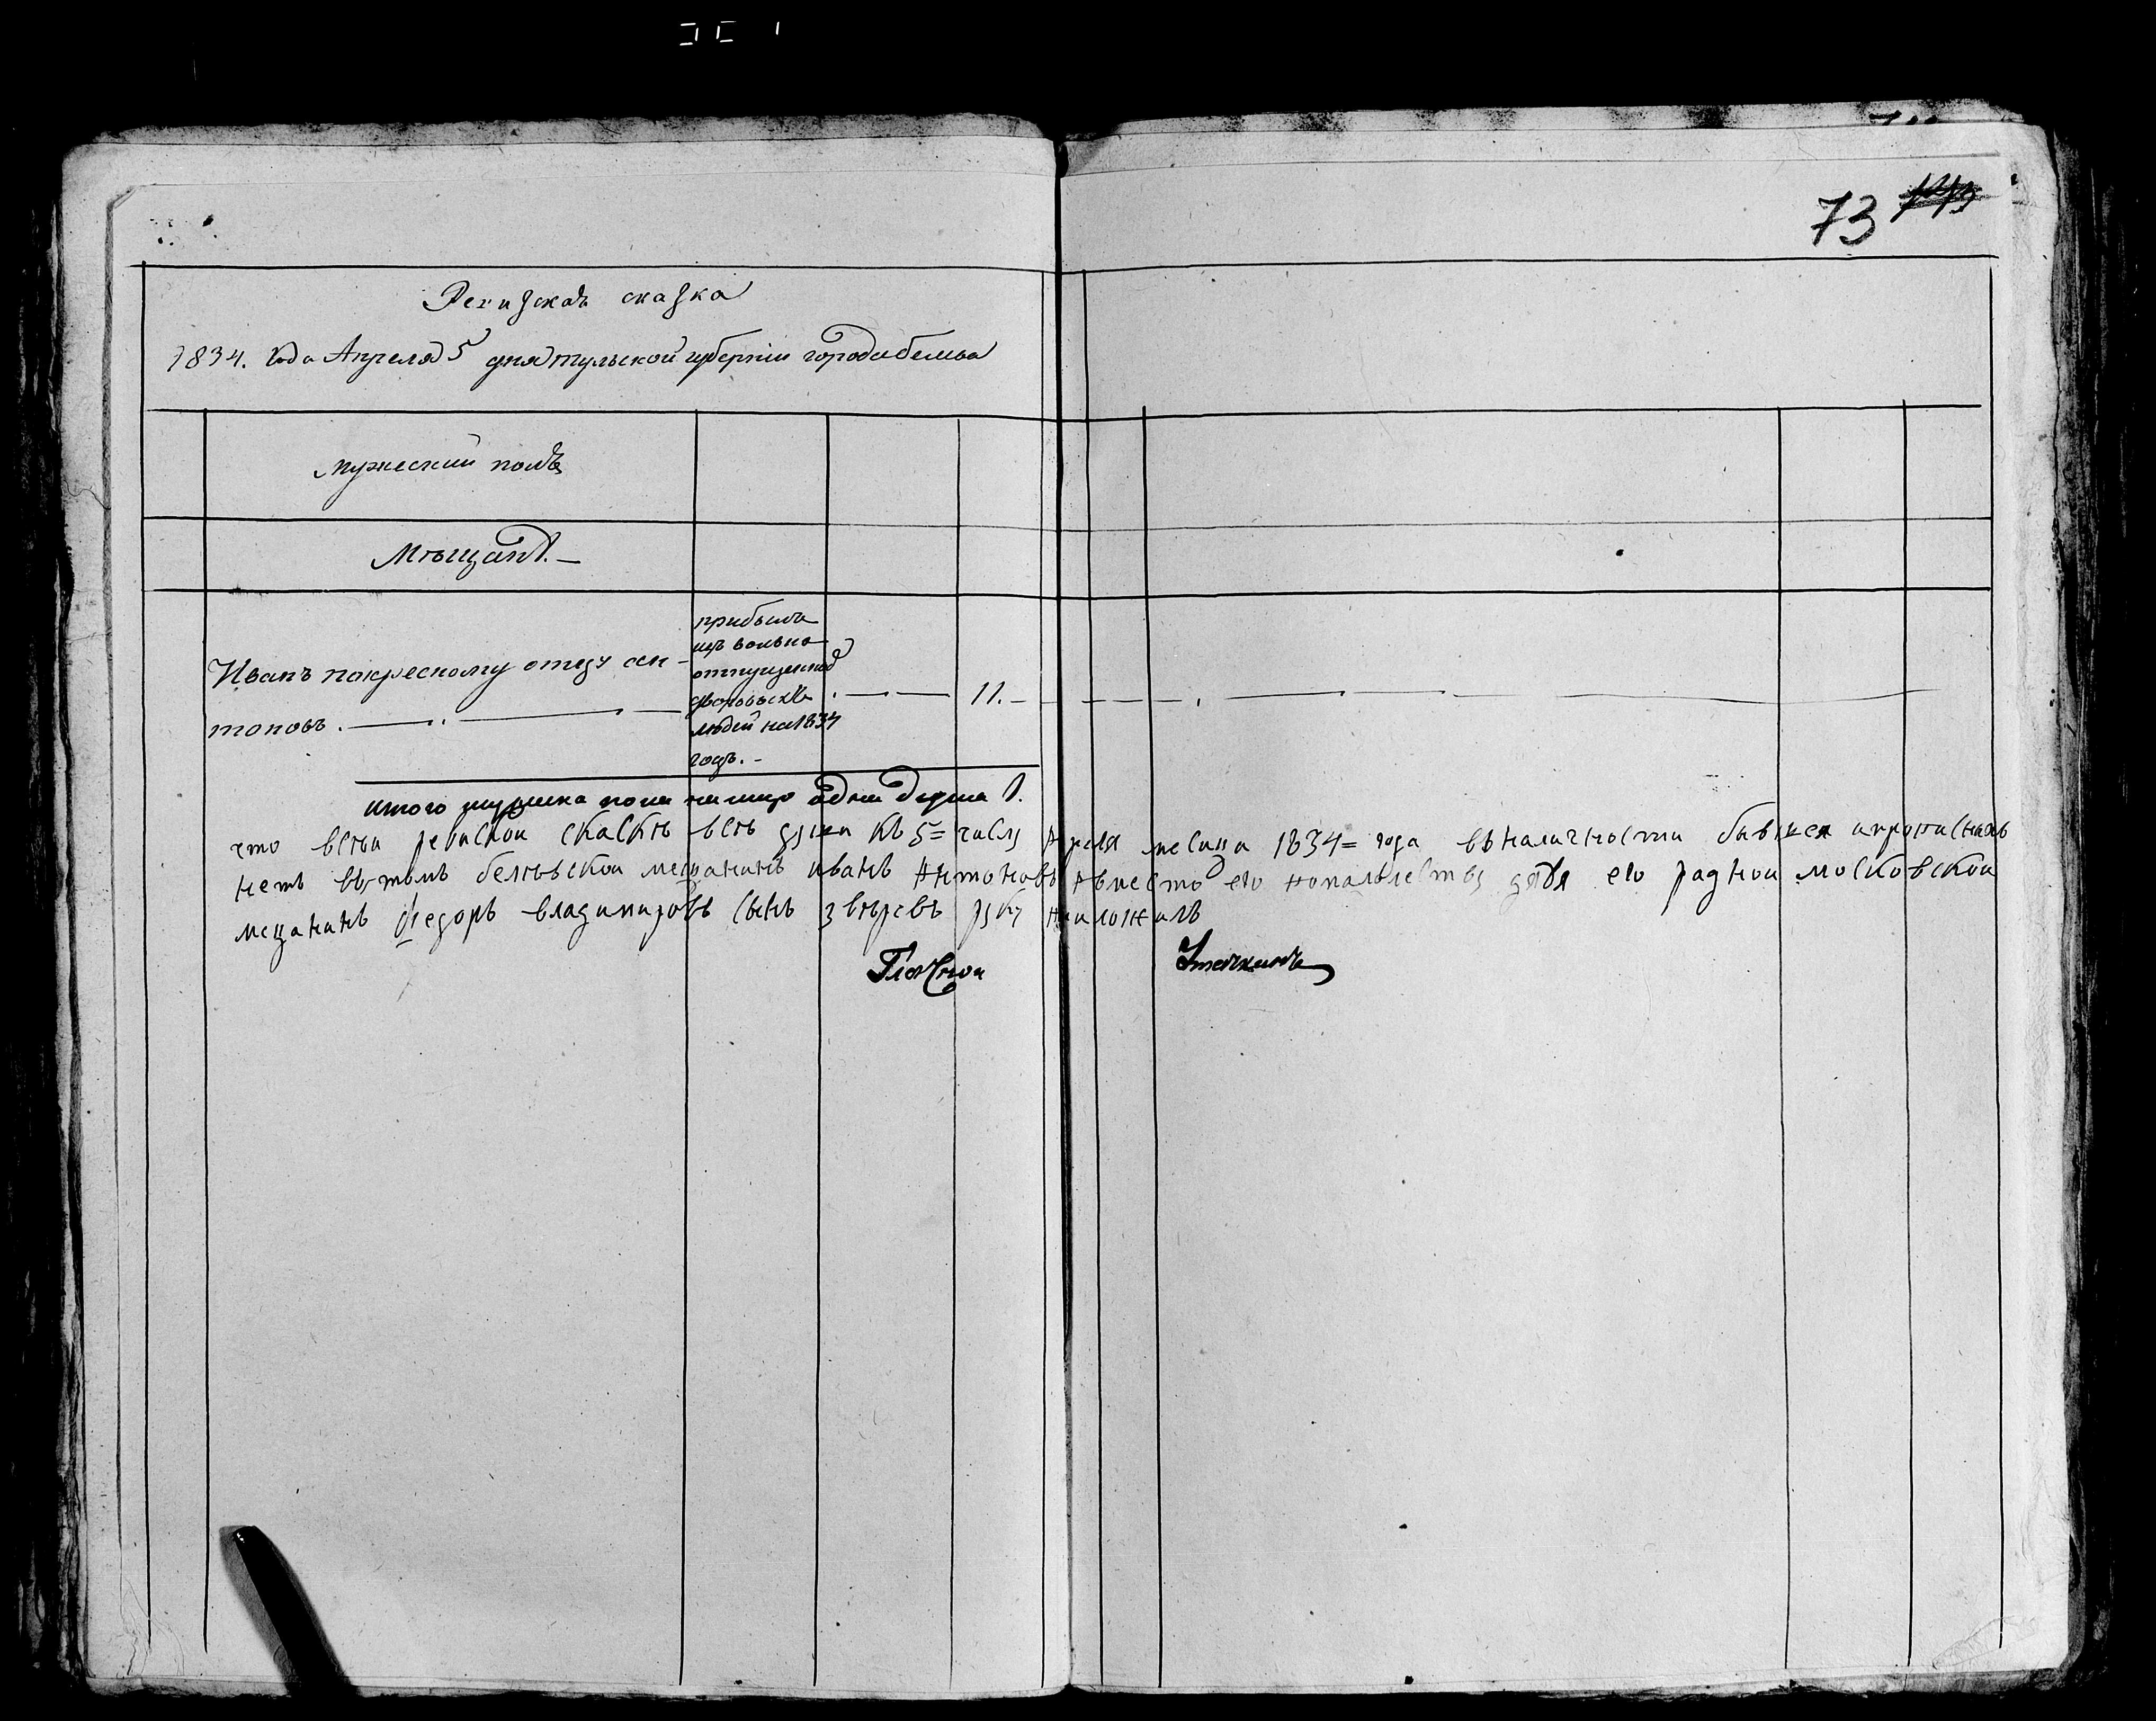 73
Ревизская сказка
1834. года Апреля 5 дня тульской губернии города белева
мужеский полъ
Мѣщанъ. —
Иванъ покресному отцу ан-
тоновъ.
прибылъ
изъ вольно
отпущенныхъ
дворовыхъ
людей на 1834
годъ. —
11. —
итого мужеска пола на лицо одна душа 1.
что всеи ревиской скаскѣ всѣ души къ 5= числу Апреля месица 1834= года вналичности бывшея
нетъ вутомъ белѣвской мещанинъ иванъ Антоновъ Авместо его дядя его радной московской
мещанинъ Федоръ владимировъ сынъ звѣревъ руку приложилъ